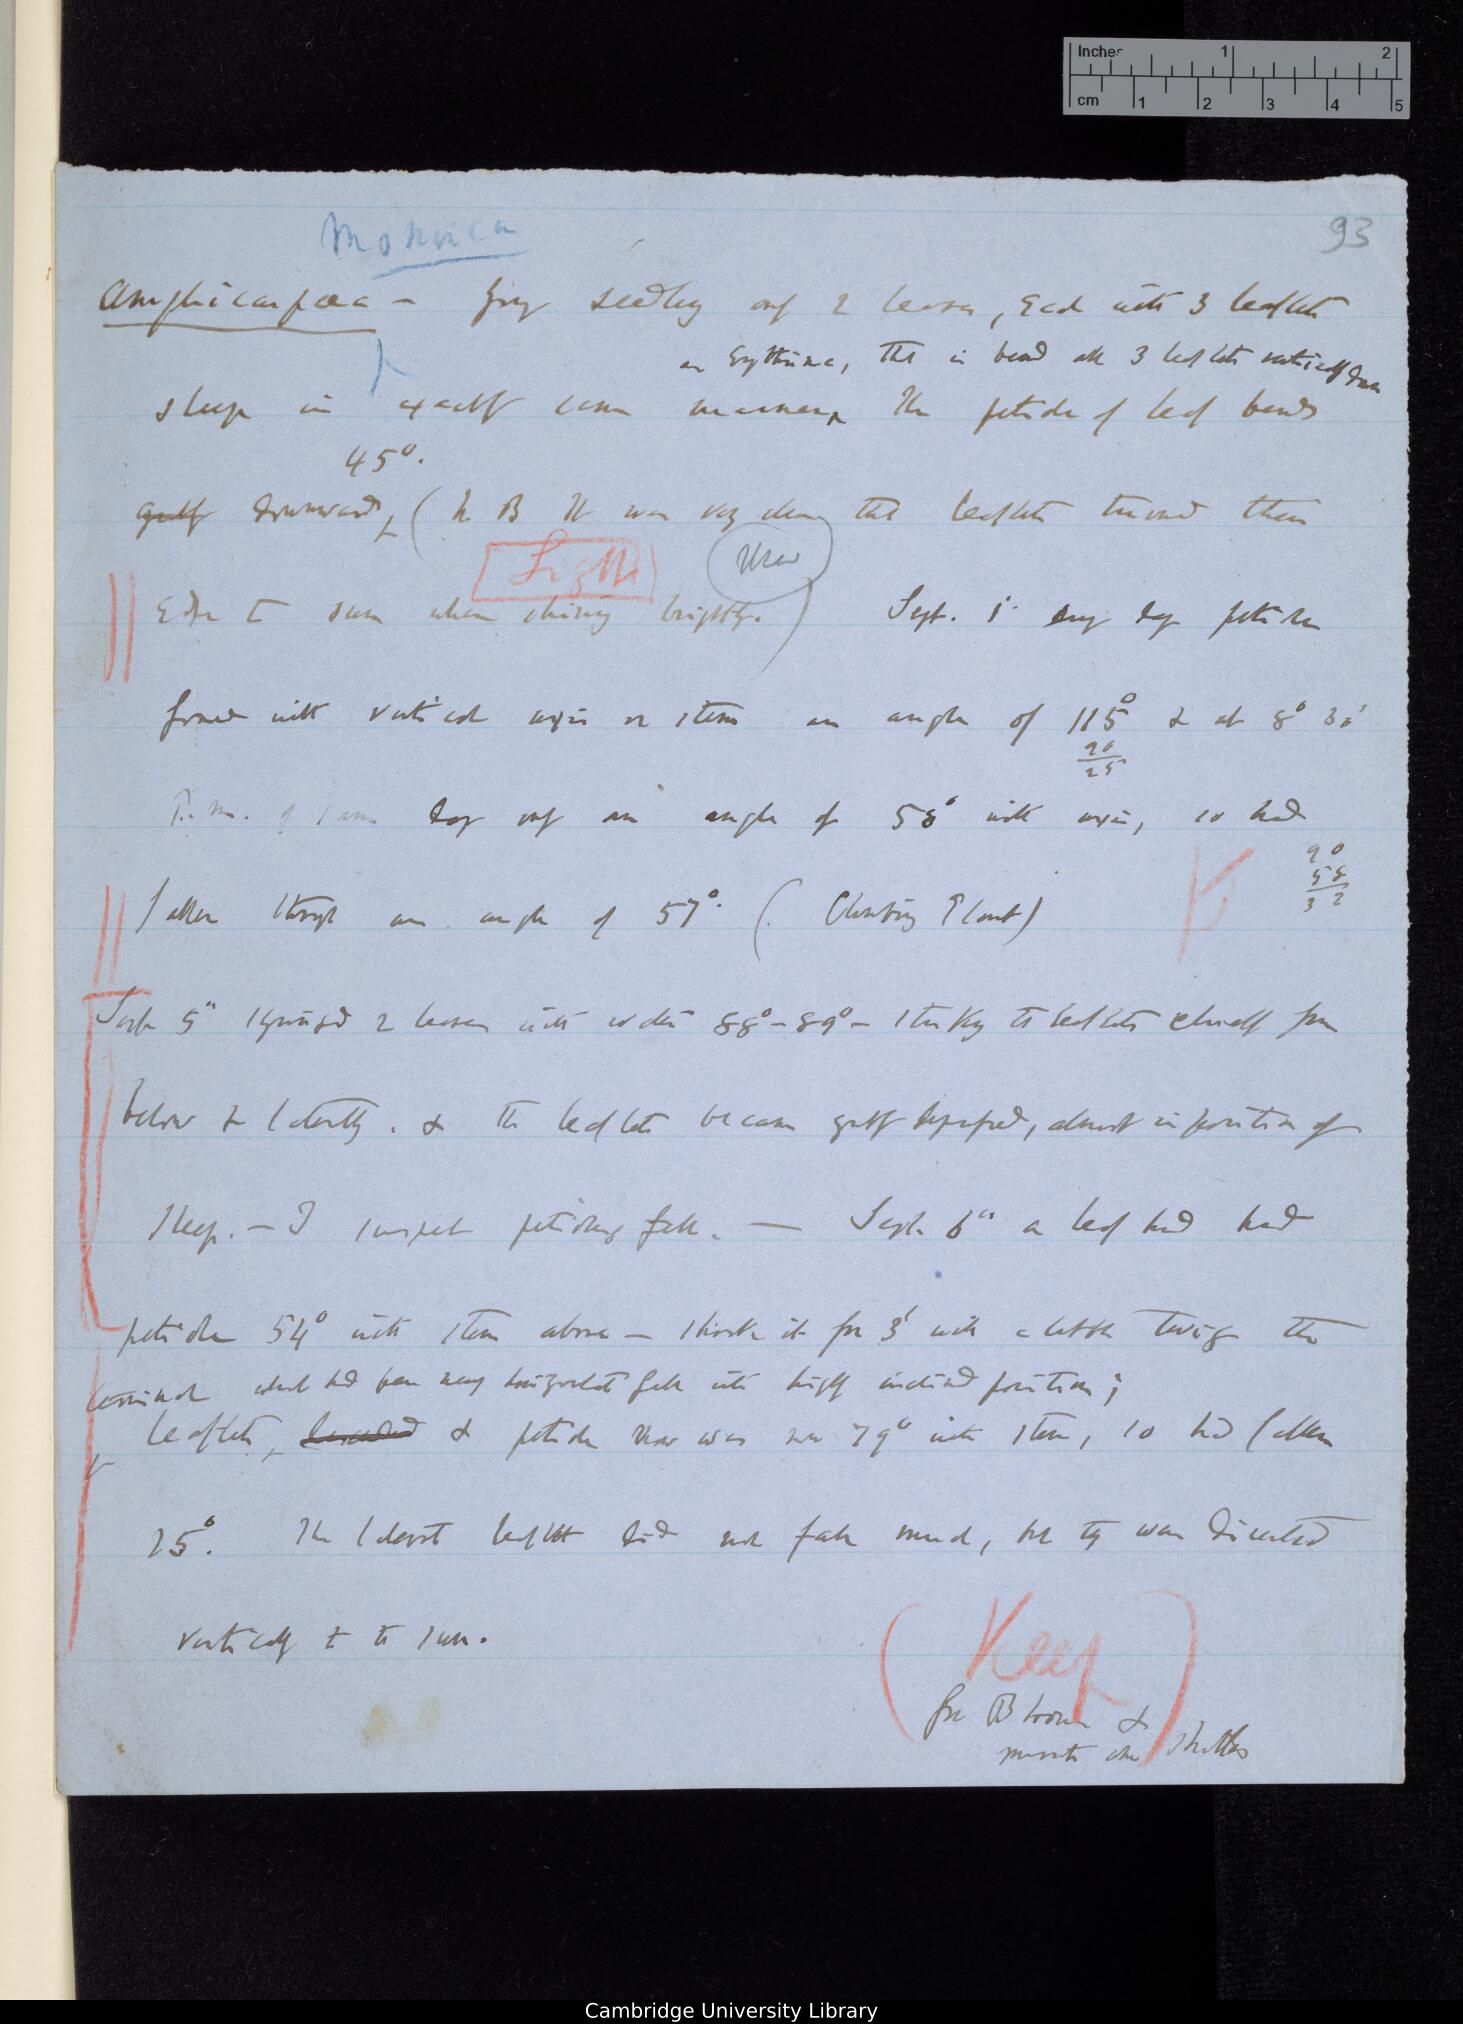 Inches 1 2
cm 1 2 3 4 5
93
monoica
Amphicarpæa — young seedling only 2 leaves, each with 3 leaflets
as Erythrina, that is bend all 3 leaflets vertically down
sleep in exactly same manner The petiole of leaf bends
45°.
greatly downwards, (N B It was very clear that leaflets turned their
Light
Edge to sun when shining brightly.) Sept. 1 day petiole
formed with vertical axis or stem an angle of 115° & at 8° 30'
90
25
P.m. of same day only an angle of 58° with axis, so had
90
58
32
fallen through an angle of 57°. (Climbing Plant)
Sept 5th syringed 2 leaves with water 88°-89° — striking the leaflets chiefly from
below & laterally. & the leaflets became greatly depressed, almost in position of
sleep. — I suspect petioles fall. — Sept. 6th a leaf had had
petiole 54° with stem above — struck it for 3' with a little twig the
terminal which had been nearly horizontal fell into highly inclined position;
leaflets, & petiole now was 79° with stem, so had fallen
25°. The lateral leaflets did not fall much, but they were directed
vertically & to sun.
(Keep)
for &